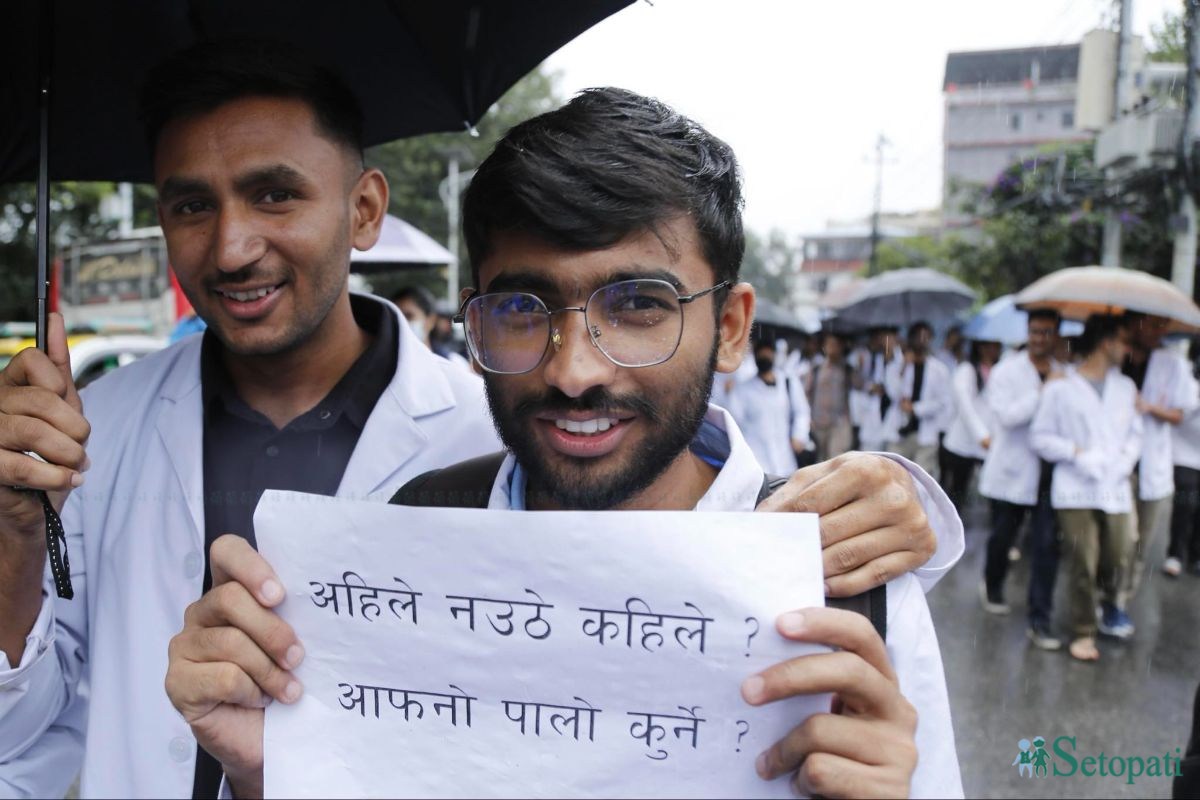 अहिले नउठे कहिले ?
आफनो पालो कुर्ने ?
Setopati